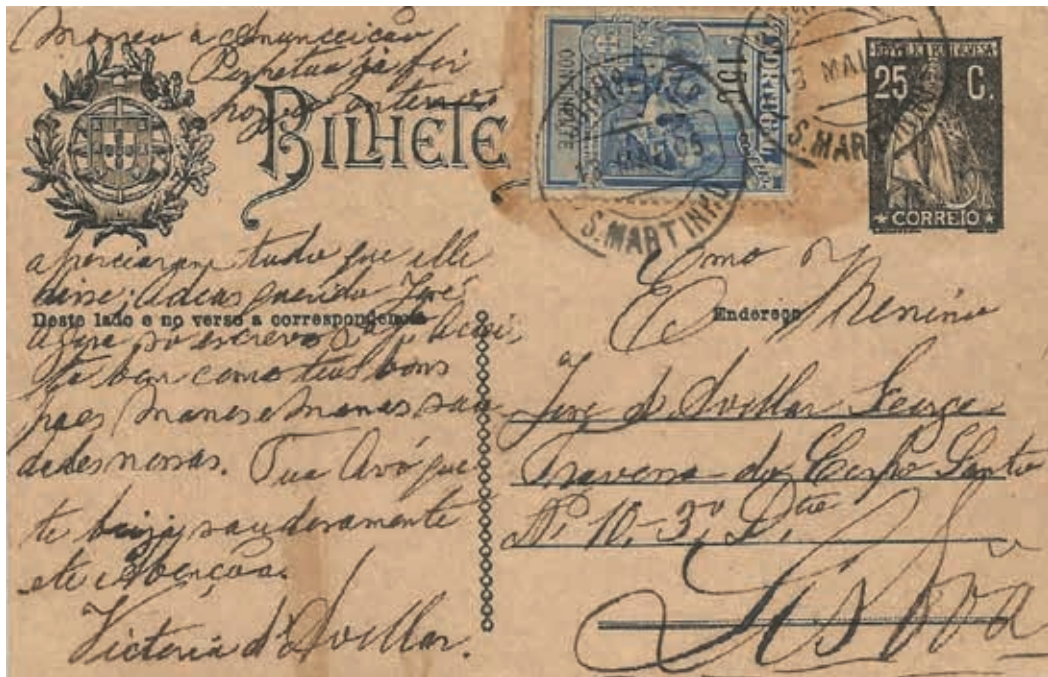 Morreu a Annunciação
Perpetua já foi
hoje o enterro
BILHETE
PORTUGAL
15 C.
CONTINENTE
S. MARTINHO
MAI
S. MAR
REPUBLICA PORTUGUESA
25 C.
CORREIO
tudo que elle
disse; adeus querido José
Deste lado e no verso a correspondencia
agora só escrevo
como teus bons
paes manos e manas sau
dades nossas. Tua Avó que
te beija saudosamente
e te abençoa.
Victoria d'Avellar.
Exmo
Endereço
Menino
José d'Avellar George
Travessa do Corpo Santo
Nº 10, 3º Dto
Lisboa